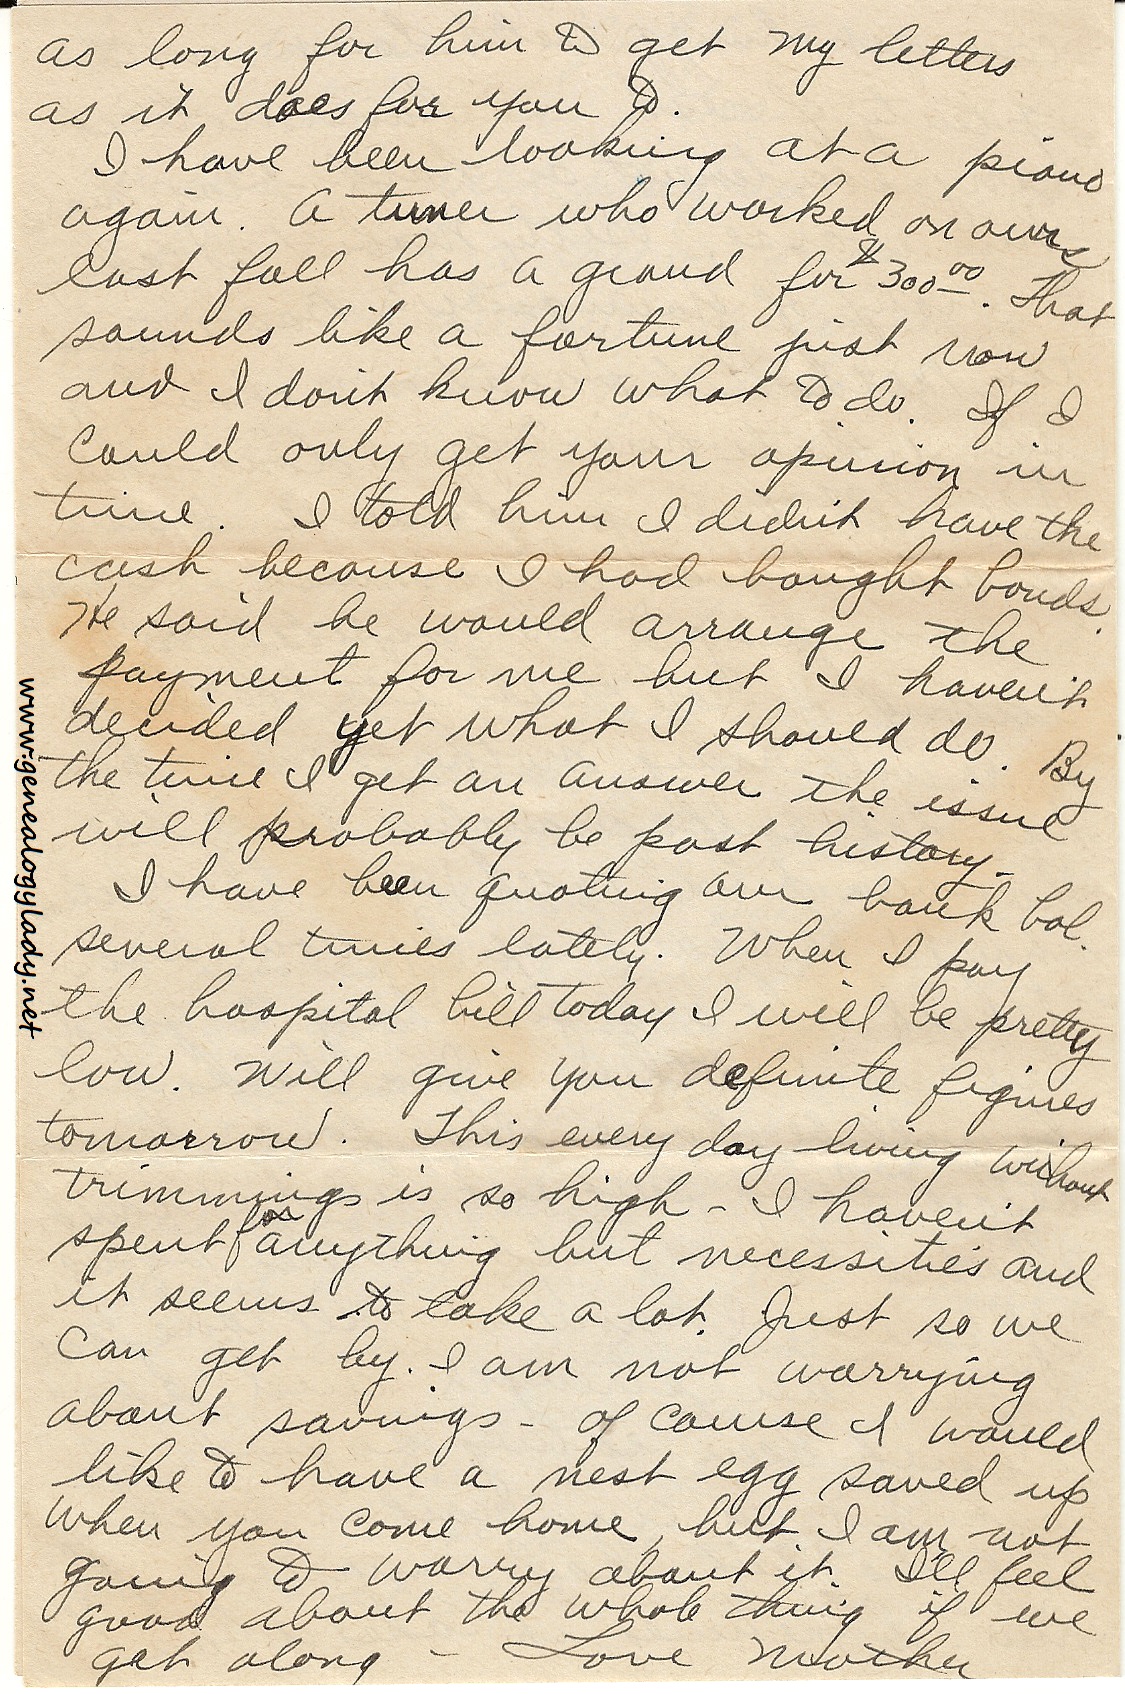 as long for him to get my letters
as it does for you to.
I have been looking at a piano
again. A tuner who worked on ours
last fall has a grand for $300.00. That
sounds like a fortune just now
and I don't know what to do. If I
could only get your opinion in
time. I told him I didn't have the
cash because I had bought bonds.
He said he would arrange the
payment for me but I haven't
decided yet what I should do. By
the time I get an answer the issue
will probably be past history.
I have been quoting our bank bal.
several times lately. When I pay
the hospital bill today I will be pretty
low. Will give you definite figures
tomorrow. This every day living without
trimmings is so high - I haven't
spent for anything but necessities and
it seems to take a lot. Just so we
can get by. I am not worrying
about savings - of course I would
like to have a nest egg saved up
when you come home, but I am not
going to worry about it. I'll feel
good about the whole thing if we
get along - Love Mother
www.genealogylady.net